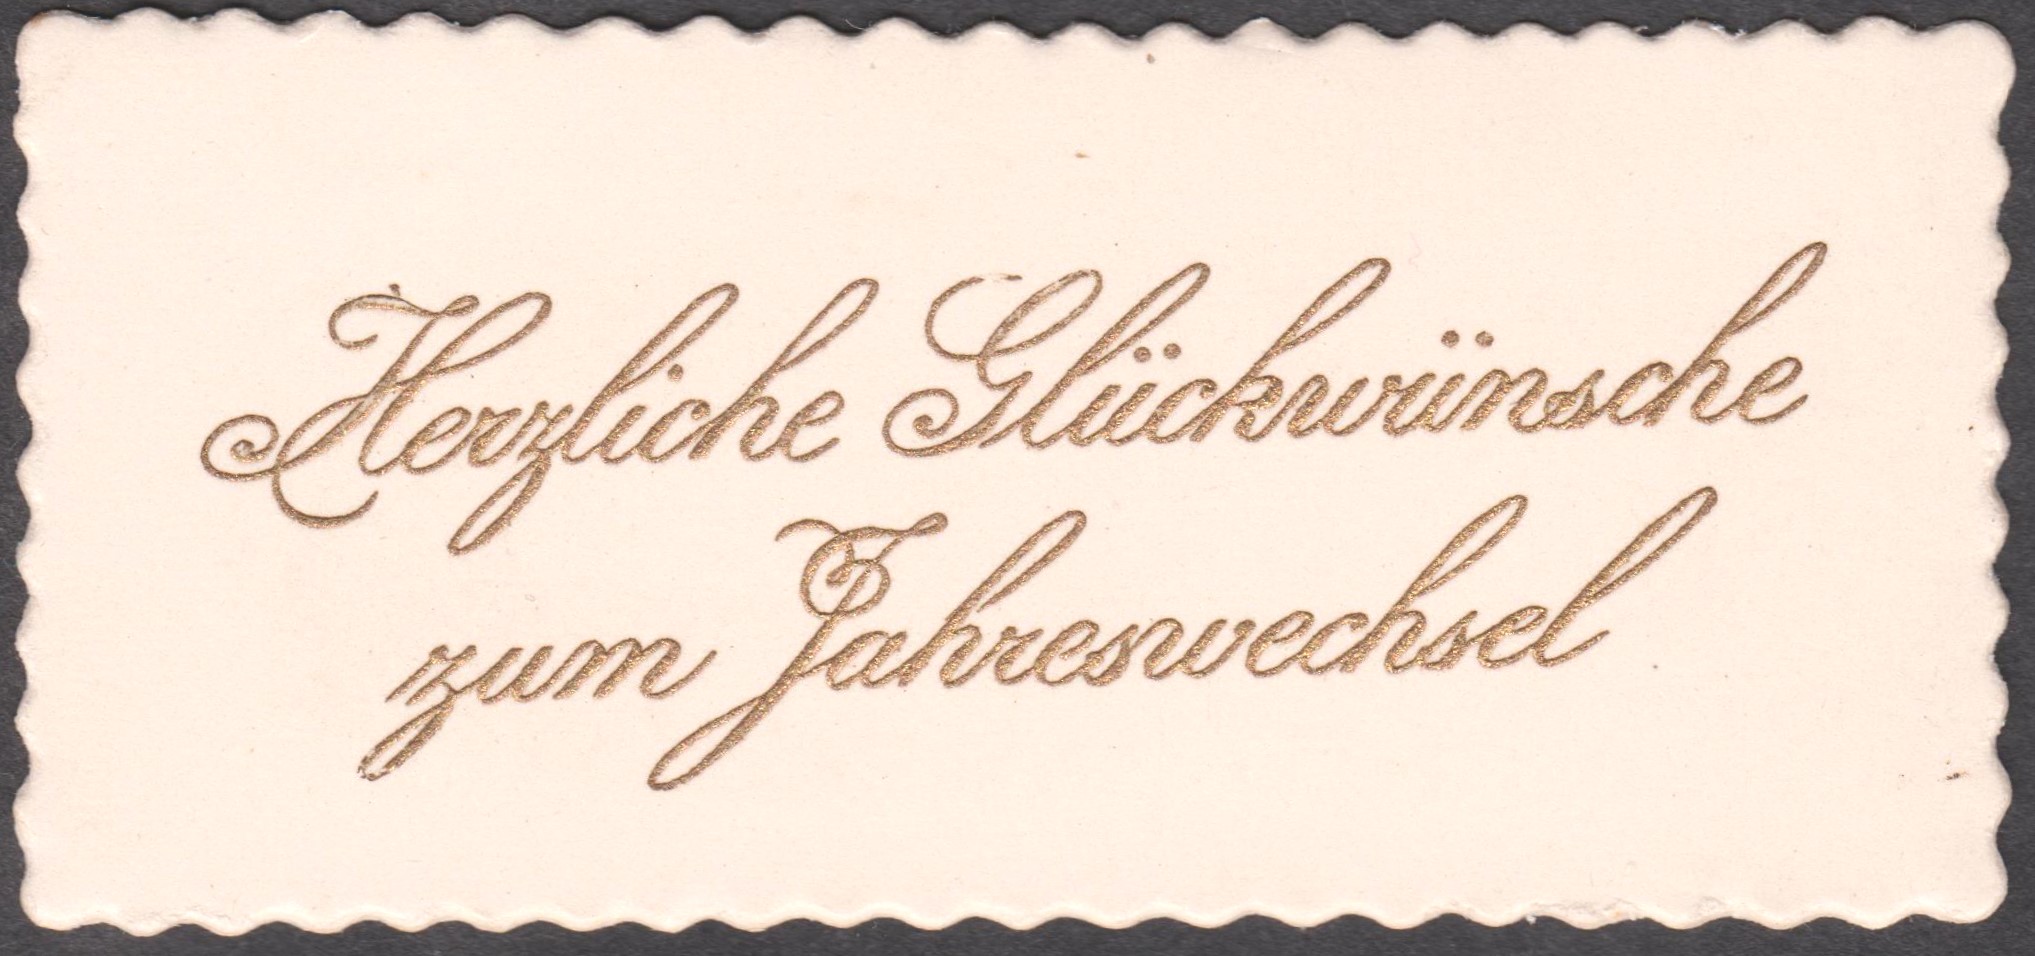 Herzliche Glückwünsche
zum Jahreswechsel